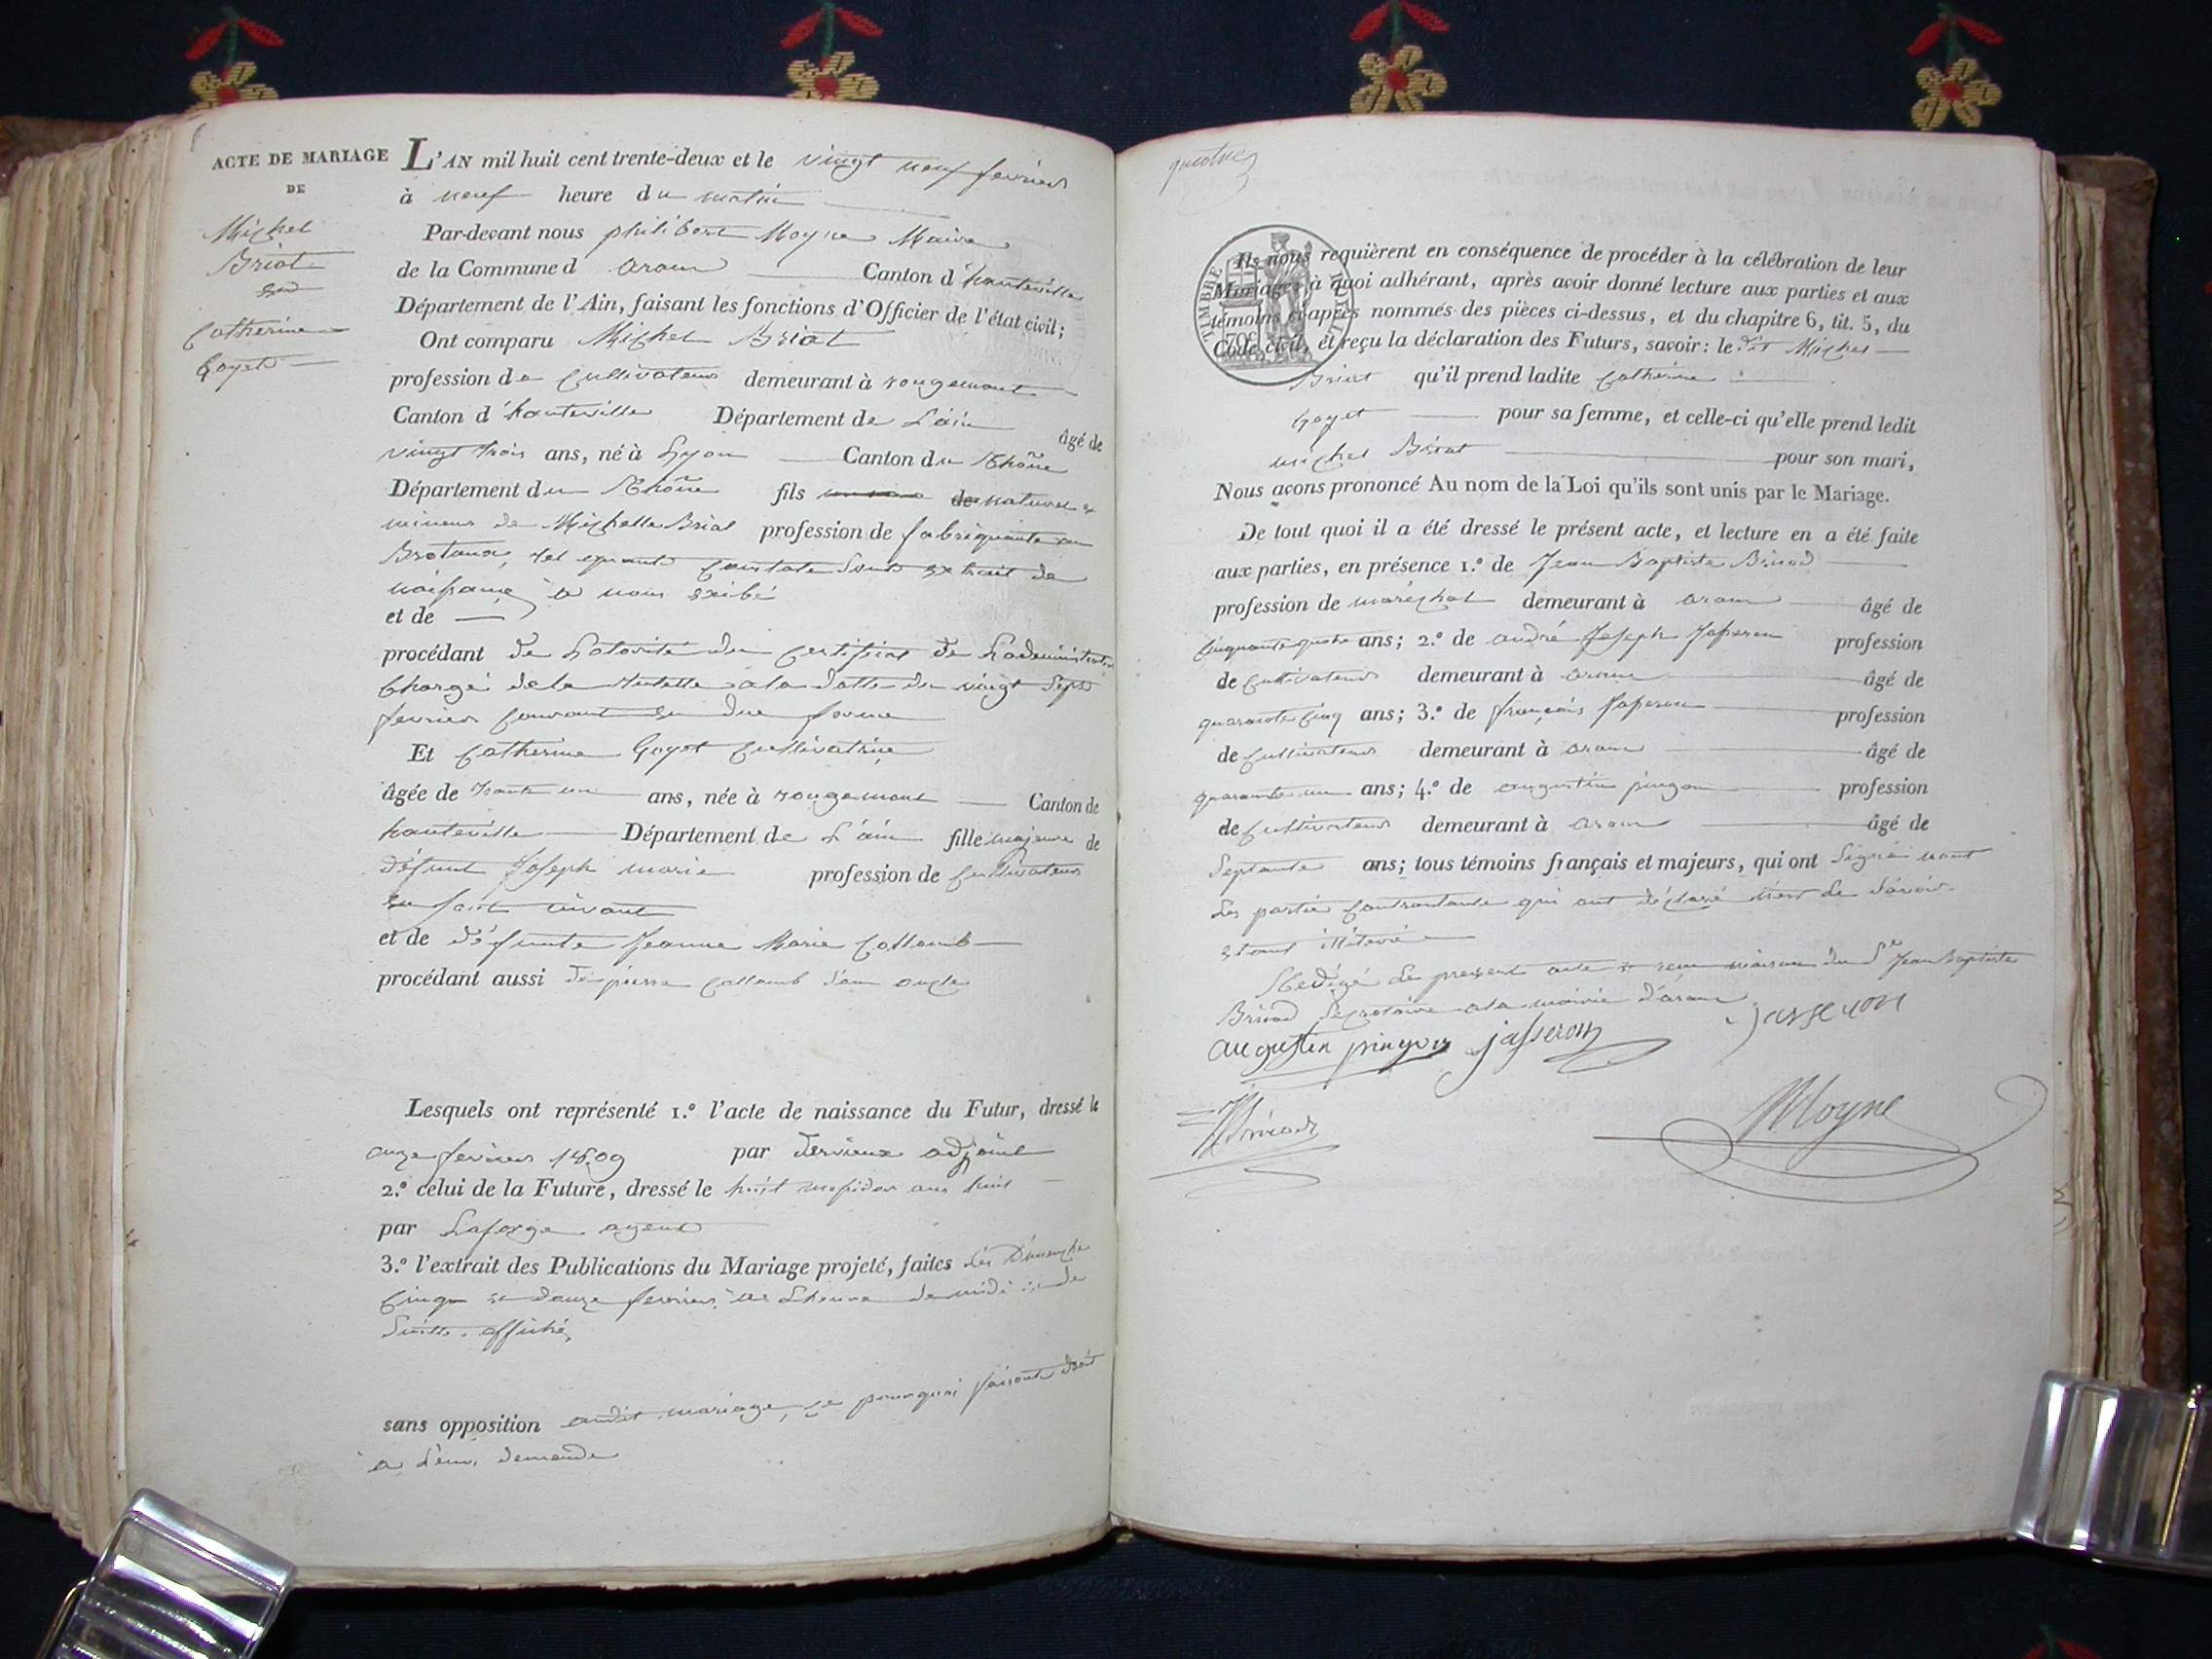 ACTE DE MARIAGE
DE
Michel
Briat
et
Catherine
Goyet
L'AN mil huit cent trente-deux et le vingt neuf fevrier
à neuf heure du matin
Par-devant nous philibert Moyne Maire
de la Commune d aranc Canton d'hauteville
Département de l'Ain, faisant les fonctions d'Officier de l'état civil;
Ont comparu Michel Briat
profession de Cultivateur demeurant à rougemont
Canton d'hauteville Département de L'ain âgé de
vingt trois ans, né à Lyon Canton du Rhône
Département du Rhône fils naturel et
mineur de Michelle Briat profession de fabriquante aux
Brotaux, tel que constate Son extrait de
naissance a nous exibé
et de
procédant de Lotorité du Certificat de Ladministration
Chargé de la tutelle a la datte du vingt Sept
fevrier Courant en due forme
Et Catherine Goyet Cultivatrice
âgée de trante un ans, née à rougemont Canton de
hauteville Département de L'ain fille majeure de
défunt Joseph marie profession de Cultivateur
en Son vivant
et de défunte Jeanne Marie Collomb
procédant aussi de pierre Collomb Son oncle
Lesquels ont représenté 1.º l'acte de naissance du Futur, dressé le
onze fevrier 1809 par dervieux adjoint
2.º celui de la Future, dressé le huit messidor an huit
par Laforge agent
3.º l'extrait des Publications du Mariage projeté, faites les Dimanche
Cinq et douze fevrier a Lheure de midi et de
Suitte affiché,
sans opposition audit mariage, ce pourquoi faisant droit
a Leur demande
TIMBRE ROYAL
70c
Ils nous requièrent en conséquence de procéder à la célébration de leur
Mariage; à quoi adhérant, après avoir donné lecture aux parties et aux
témoins ci-après nommés des pièces ci-dessus, et du chapitre 6, tit. 5, du
Code civil, et reçu la déclaration des Futurs, savoir: le dit Michel
Briat qu'il prend ladite Catherine
Goyet pour sa femme, et celle-ci qu'elle prend ledit
michel Briat pour son mari,
Nous avons prononcé Au nom de la Loi qu'ils sont unis par le Mariage.
De tout quoi il a été dressé le présent acte, et lecture en a été faite
aux parties, en présence 1.º de Jean Baptiste Brinod
profession de maréchal demeurant à aranc âgé de
Cinquante quatre ans; 2.º de andré Joseph Jasseron profession
de Cultivateur demeurant à aranc âgé de
quarante Cinq ans; 3.º de françois Jasseron profession
de Cultivateur demeurant à aranc âgé de
quarante un ans; 4.º de augustin pingon profession
de Cultivateur demeurant à aranc âgé de
Septante ans; tous témoins français et majeurs, qui ont Signé nont
Les partie Contractante qui ont déclaré ne Le Savoir
etant illiteré
Rédigé Le present acte et par du Sr Jean Baptiste
Brinod Secretaire a la mairie d'aranc
augusten pingon jasseron jasseron
Brinod
Moyne